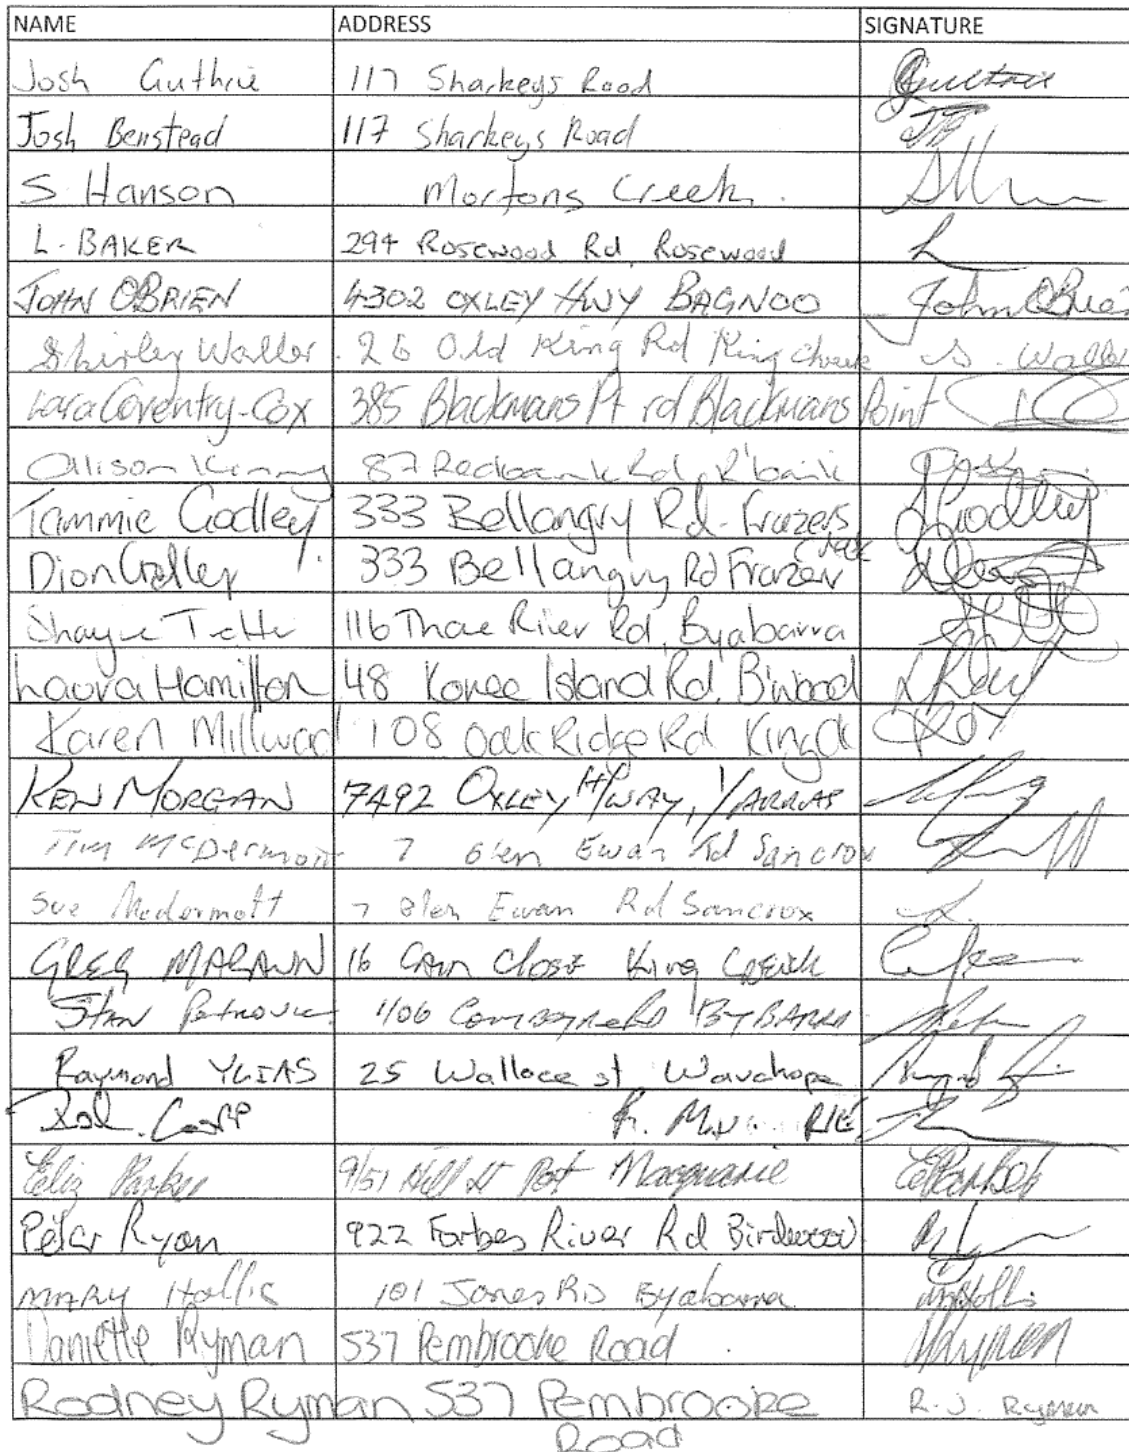 NAME ADDRESS SIGNATURE
Josh Guthrie 117 Sharkeys Road Guthrie
Josh Benstead 117 Sharkeys Road JB
S. Hanson Mortons Creek.
L. BAKER 294 Rosewood Rd, Rosewood L
JOHN OBRIEN 4302 OXLEY HWY BAGNOO John OBrien
Shirley Waller. 26 Old King Rd King Creek S. Waller
Lara Coventry-Cox 385 Blackmans Pt rd Blackmans Point
Allison Kenny 87 Redbank Rd, R'bank
Tammie Godley 333 Bellangry Rd - Frazers Creek TGodley
Dion Godley 333 Bellangry Rd Frazer
Shayne 116 Thone River Rd, Byabarra
Laura Hamilton 48 Island Rd, B'wood
Karen Millward 108 Oak Ridge Rd King Ck
KEN MORGAN 7492 OXLEY H/WAY, YARRAS
Tim McDermott 7 Glen Ewan Rd Sancrox
Sue McDermott 7 Glen Ewan Rd Sancrox
GREG 16 Close King Creek
Stan Petrovic 1/06 Comboyne Rd BYBARRA
Raymond 25 Wallace st Wauchope
Rod.
Eliz Parker 9/51 Hill St Port Macquarie EParker
Peter Ryan 922 Forbes River Rd Birdwood
MARY Hollis 101 Jones RD Byabarra MHollis
Danielle Ryman 537 Pembrooke Road DRyman
Rodney Ryman 537 Pembrooke R.J. Ryman
Road